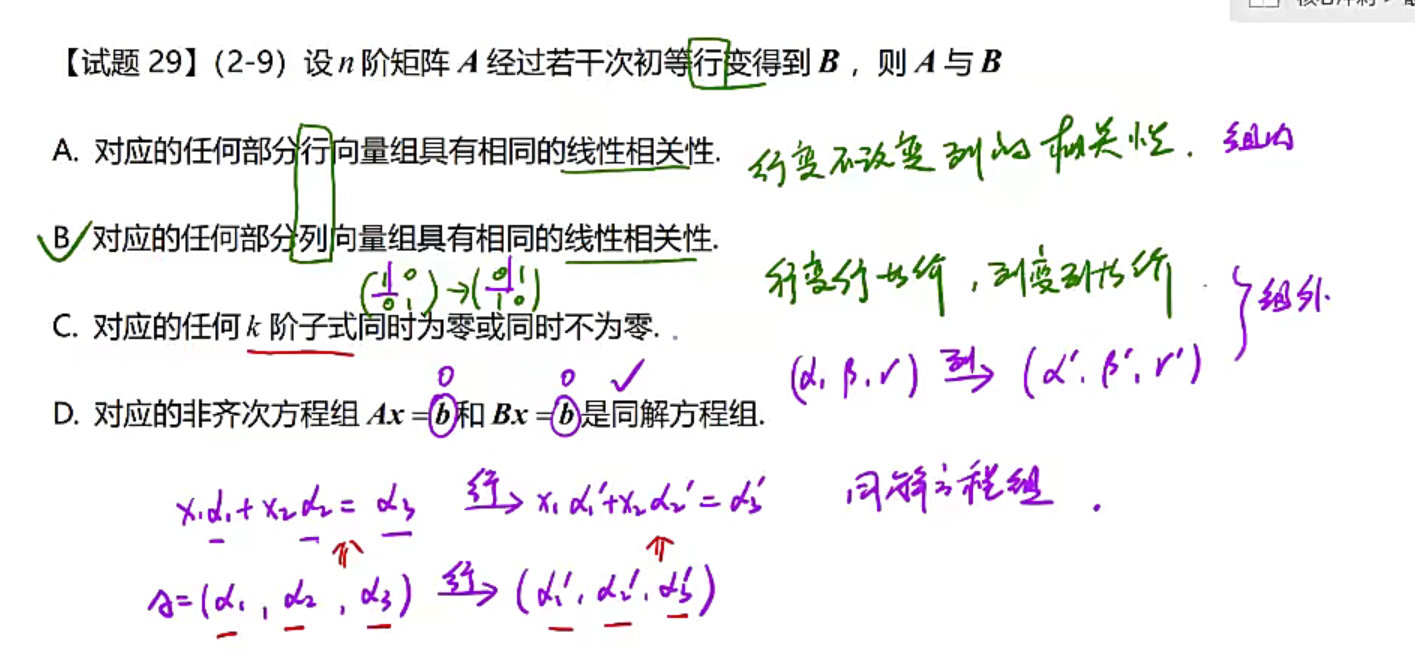 【试题 29】(2-9) 设 n 阶矩阵 A 经过若干次初等行变得到 B ，则 A 与 B
A. 对应的任何部分行向量组具有相同的线性相关性.
行变不改变列的相关性. 组内
B 对应的任何部分列向量组具有相同的线性相关性.
(1 0 0 1) → (0 1 1 0)
行变行等价，列变列等价 } 组外
C. 对应的任何 k 阶子式同时为零或同时不为零.
(α, β, r) 列→ (α′, β′, r′)
0 0 ✓
D. 对应的非齐次方程组 Ax = b 和 Bx = b 是同解方程组.
x₁α₁+x₂α₂ = α₃ 行→ x₁α₁′+x₂α₂′ = α₃′ 同解方程组.
A=(α₁, α₂, α₃) 行→ (α₁′, α₂′, α₃′)